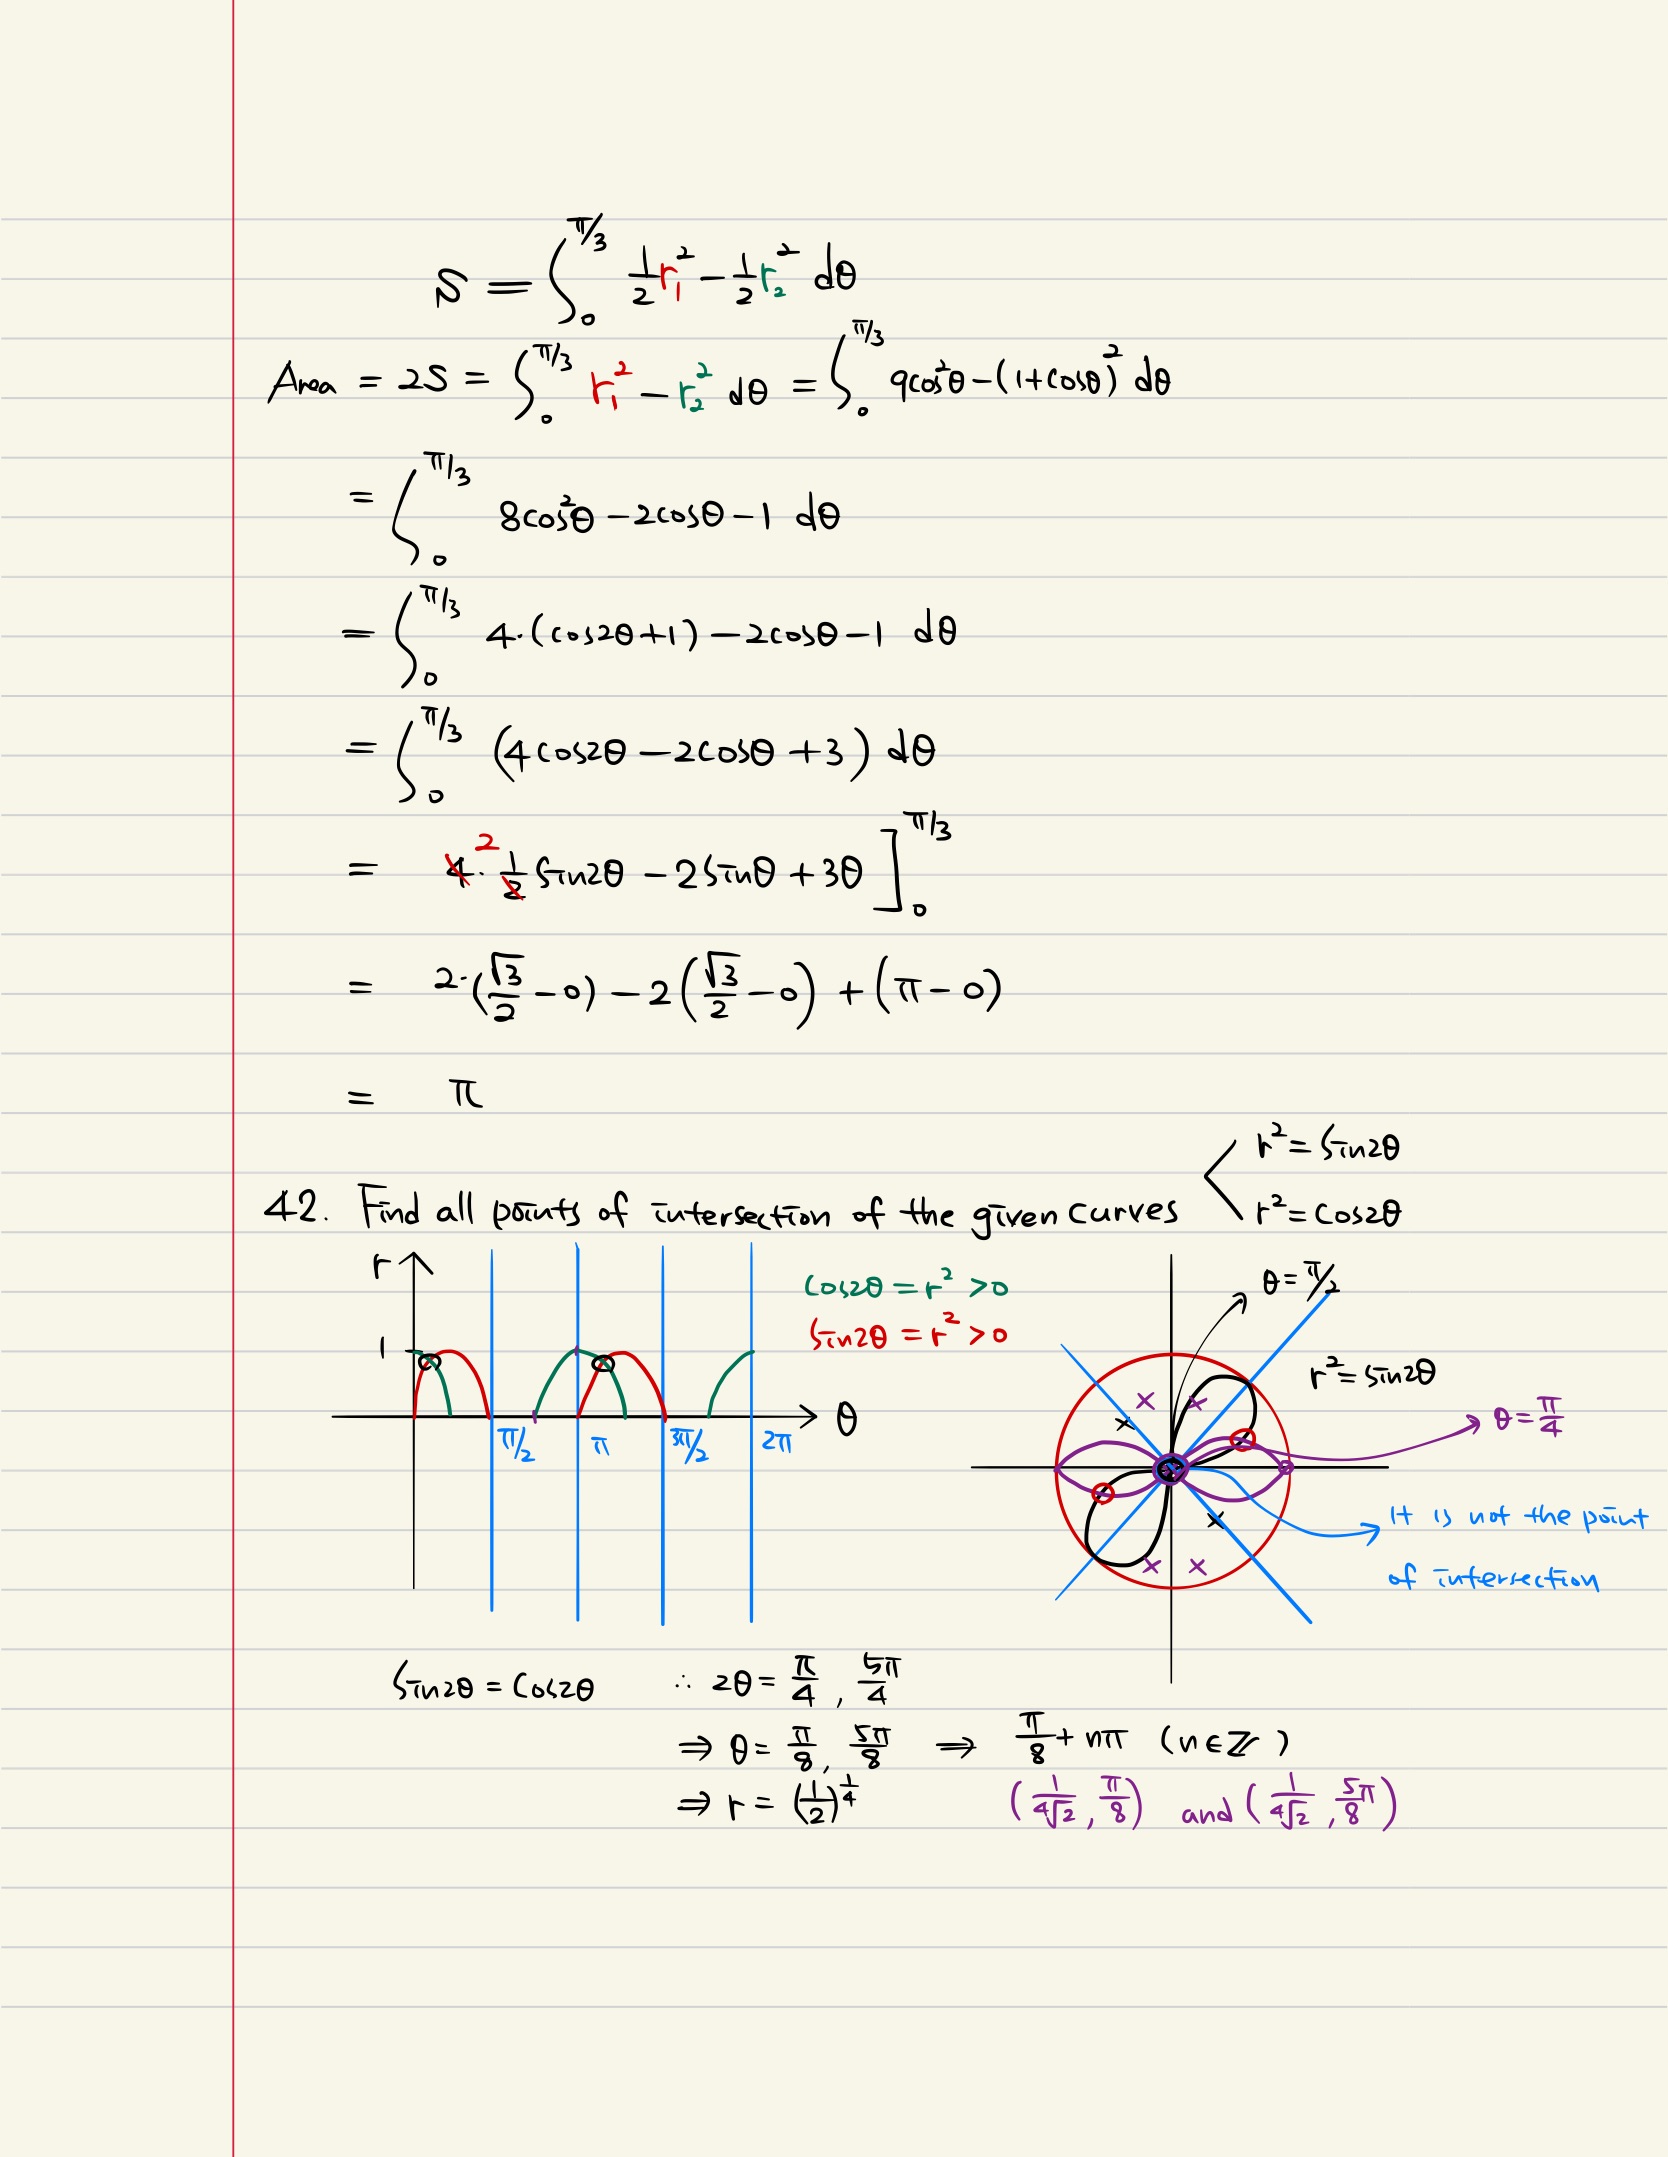 S = ∫₀^{π/3} 1/2 r₁² − 1/2 r₂² dθ
Area = 2S = ∫₀^{π/3} r₁² − r₂² dθ = ∫₀^{π/3} 9cos²θ − (1+cosθ)² dθ
= ∫₀^{π/3} 8cos²θ − 2cosθ − 1 dθ
= ∫₀^{π/3} 4·(cos2θ+1) − 2cosθ − 1 dθ
= ∫₀^{π/3} (4cos2θ − 2cosθ + 3) dθ
= 4· 2 1/2 sin2θ − 2sinθ + 3θ ]₀^{π/3}
= 2·(√3/2 − 0) − 2(√3/2 − 0) + (π − 0)
= π
r² = sin2θ
42. Find all points of intersection of the given curves
r² = cos2θ
r
cos2θ = r² > 0
θ = π/2
1
sin2θ = r² > 0
r² = sin2θ
θ
θ = π/4
π/2 π 3π/2 2π
It is not the point
of intersection
sin2θ = cos2θ ∴ 2θ = π/4, 5π/4
⇒ θ = π/8, 5π/8 ⇒ π/8 + nπ (n∈ℤ)
⇒ r = (1/2)^{1/4} (1/4√2, π/8) and (1/4√2, 5π/8)